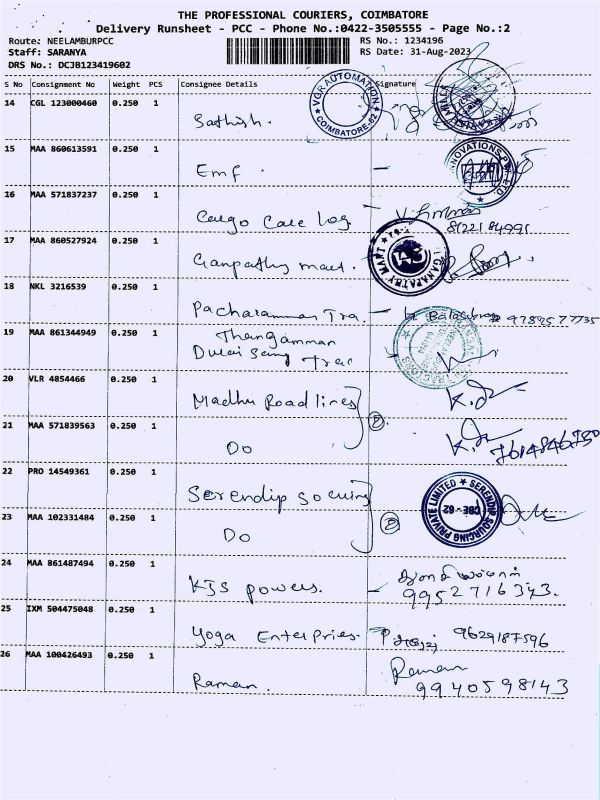 THE PROFESSIONAL COURIERS, COIMBATORE
Delivery Runsheet - PCC - Phone No.:0422-3505555 - Page No.:2
Route: NEELAMBURPCC
RS No.: 1234196
Staff: SARANYA
RS Date: 31-Aug-2023
DRS No.: DCJB123419602
S No Consignment No Weight PCS Consignee Details Signature
14 CGL 123000460 0.250 1
Sathish.
VGR AUTOMATION
COIMBATORE-62
15 MAA 860613591 0.250 1
Emf.
16 MAA 571837237 0.250 1
Cargo Care Log.
8122184991
17 MAA 860527924 0.250 1
Ganpathy mart.
GANAPATHY MART
18 NKL 3216539 0.250 1
Pacharamman Tra.
9789577735
19 MAA 861344949 0.250 1
Thangamman
Durai Samy Trac
20 VLR 4854466 0.250 1
Madhu Roadlines
21 MAA 571839563 0.250 1
Do
7614846750
22 PRO 14549361 0.250 1
Serendip Sourcing
SERENDIP SOURCING PRIVATE LIMITED
CBE-62
23 MAA 102331484 0.250 1
Do
24 MAA 861487494 0.250 1
KJS powers.
9952716343.
25 IXM 504475048 0.250 1
Yoga Enterpries.
9629187596
26 MAA 100426493 0.250 1
Raman.
Raman
9940598143